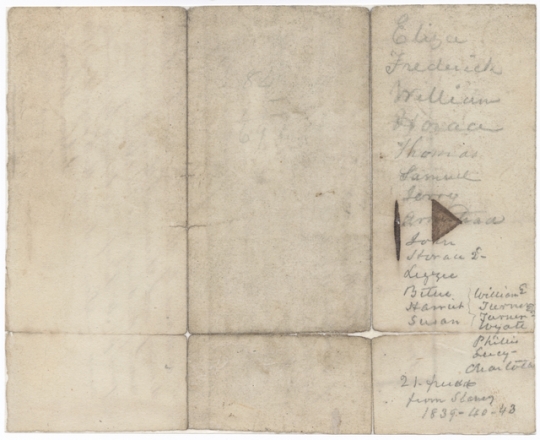 Eliza
Frederick
William
Horace
Thomas
Samuel
Jerry
John
Horace E-
Lizzie
Betsie
Harriet
Susan
William E
Turner
Turner
Wyatt
Phillis
Lucy-
Charlotte
21-
from Slavery
1839-40-43